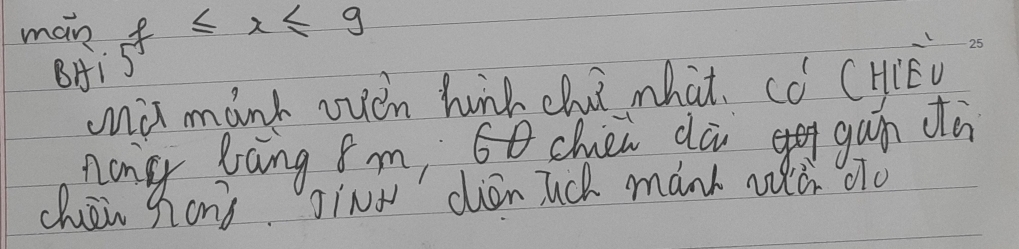 mãn f ≤ x ≤ 9
25
BÀI 5
Một mảnh vườn hình chữ nhật. có CHIỀU
rộng bằng 8 m, chiều dài gấp đôi
chiều rộng. TÍNH diện tích mảnh vườn đó